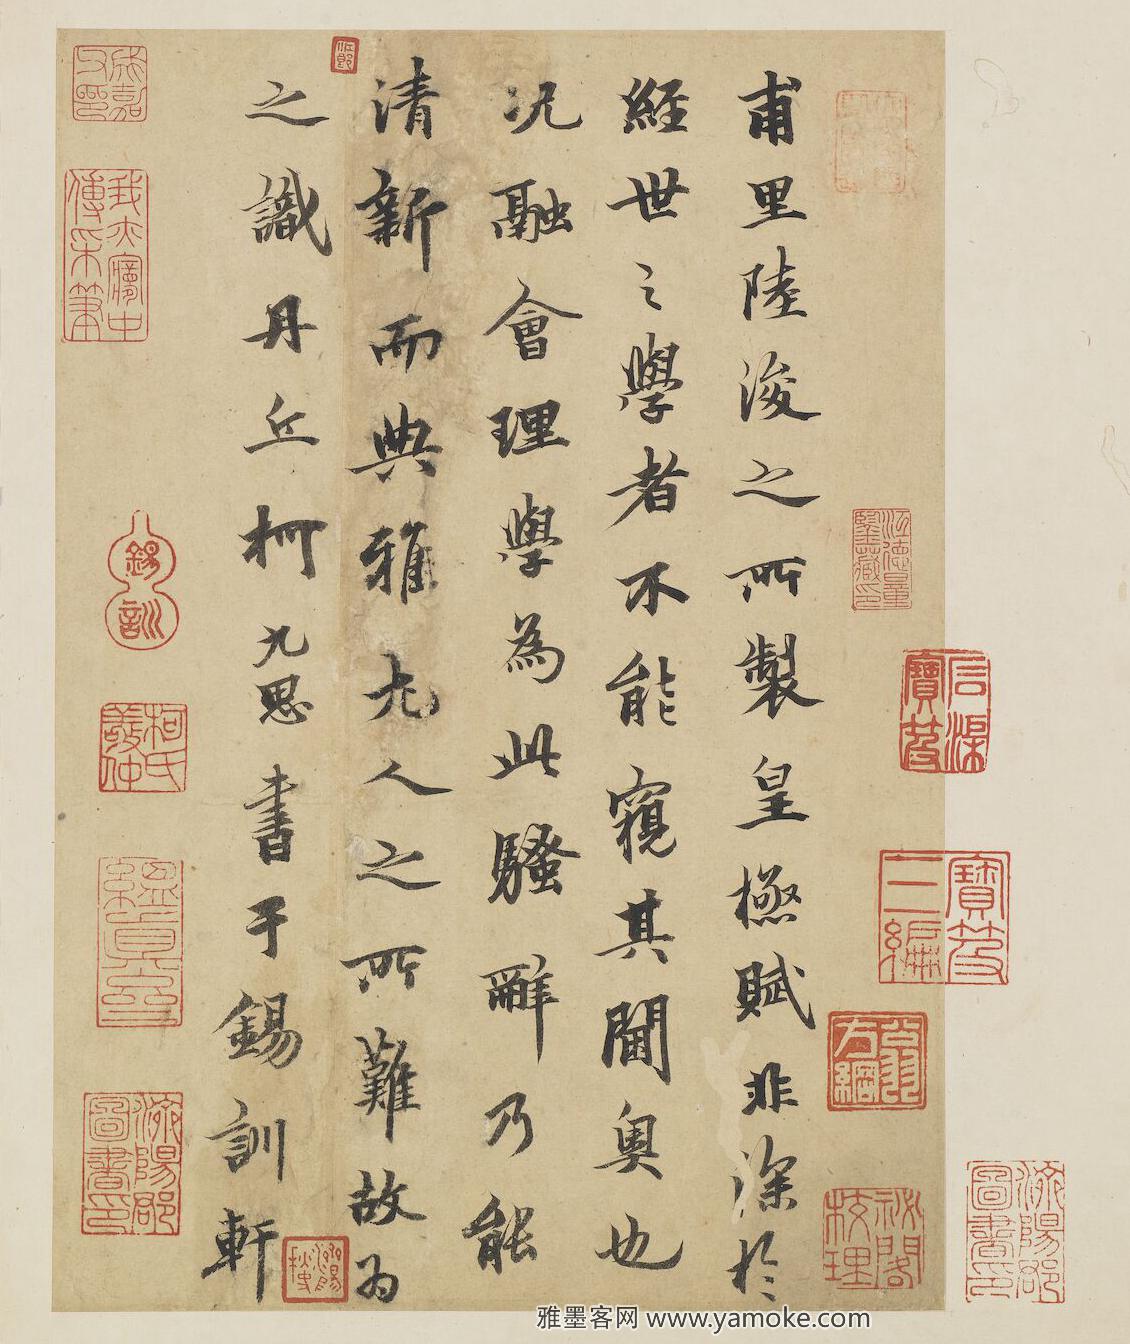 甫里陸浚之所製皇極賦非深於
經世之學者不能窺其閫奧也
況融會理學為此騷辭乃能
清新而典雅尤人之所難故為
之識丹丘柯九思書于錫訓軒
錫訓
柯氏敬仲
寶笈三編
滋陽郡圖書印
雅墨客网 www.yamoke.com